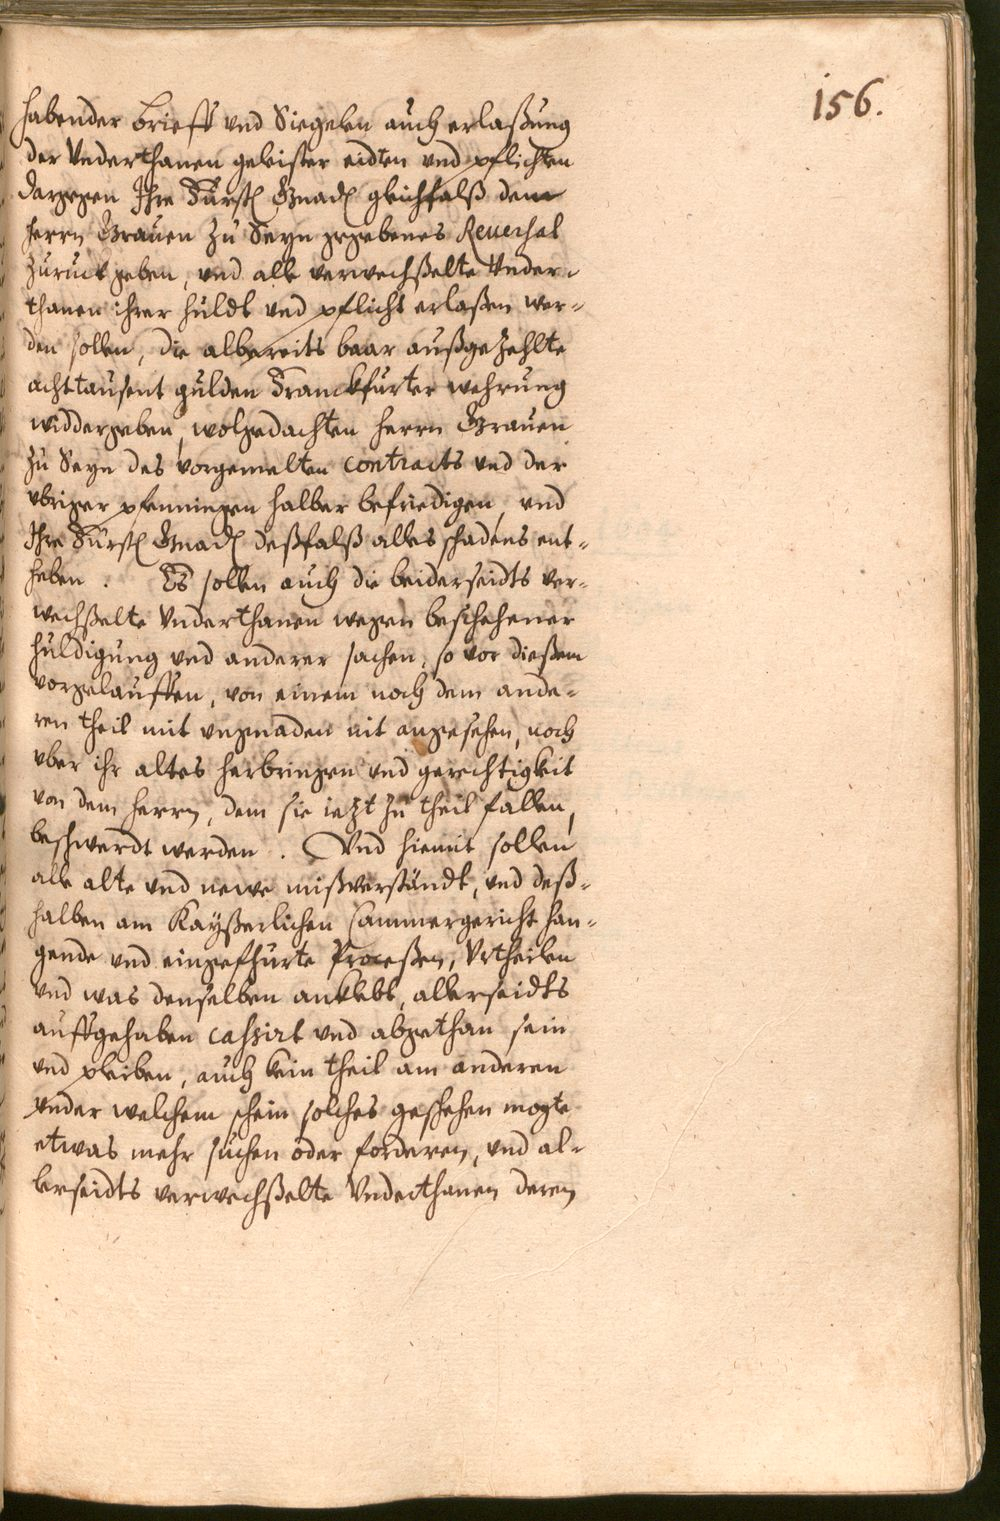 156.
habender brieff vnd Siegelen auch erlaßung
der Vnderthanen geleister eidten vnd pflichten
dargegen Ihre Fürstl Gnadl gleichfalß dem
herrn Grauen zu Seyn gegebenes Reuersal
zuruck geben, vnd alle verwechßelte Vnder-
thanen ihrer huldt vnd pflicht erlaßen wer-
den sollen, die albereits baar außgezehlte
acht tausent gulden Franckfurter wehrung
widdergeben, wolgedachten herrn Grauen
zu Seyn des vorgemelten contracts vnd der
vbriger pfenningen halber befriedigen, vnd
Ihre Fürstl Gnadl deßfalß alles schadens ent-
heben. Es sollen auch die beiderseidts ver-
wechßelte Vnderthanen wegen beschehener
huldigung vnd anderer sachen, so vor dießem
vorgelauffen, von einem noch dem ande-
ren theil mit vngnaden nit angesehen, noch
vber ihr altes herbringen vnd gerechtigkeit
von dem herrn, dem sie ietzt zu theil fallen,
beschwerdt werden. Vnd hiemit sollen
alle alte vnd newe mißverständt, vnd deß-
halben am Kayßerlichen Cammergericht han-
gende vnd eingefhürte Proceßen, Vrtheilen
vnd was denselben anklebt, allerseidts
auffgehaben cassirt vnd abgethan sein
vnd pleiben, auch kein theil am anderen
vnder welchem schein solches geschehen mogte
etwas mehr suchen oder forderen, vnd al-
lerseidts verwechßelte Vnderthanen deren